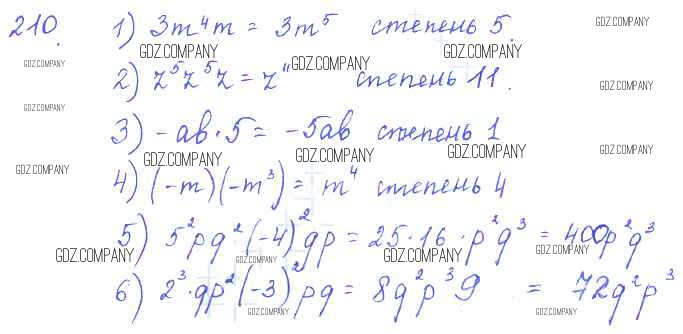 210. 1) 3m⁴m = 3m⁵ степень 5.
GDZ.COMPANY GDZ.COMPANY GDZ.COMPANY
GDZ.COMPANY GDZ.COMPANY
2) z⁵z⁵z = z¹¹ степень 11.
GDZ.COMPANY
GDZ.COMPANY
3) -ab·5 = -5ab степень 1
GDZ.COMPANY GDZ.COMPANY GDZ.COMPANY GDZ.COMPANY
GDZ.COMPANY
4) (-m)(-m³) = m⁴ степень 4
5) 5²pq²(-4)²qp = 25·16·p²q³ = 400p²q³
GDZ.COMPANY GDZ.COMPANY GDZ.COMPANY GDZ.COMPANY
6) 2³·qp²(-3)²pq = 8q²p³9 = 72q²p³
GDZ.COMPANY GDZ.COMPANY